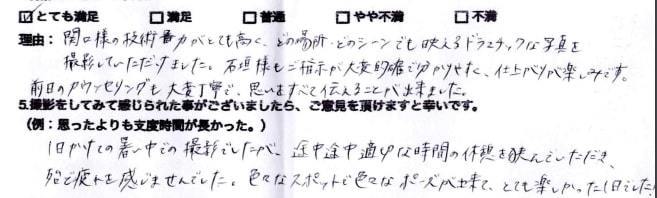 ☑とても満足 □満足 □普通 □やや不満 □不満
理由：関口様の技術力がとても高く、どの場所・どのシーンでも映えるドラマチックな写真を
撮影していただけました。石垣様もご指示が大変的確で分かりやすく、仕上がりが楽しみです。
前日のカウンセリングも大変丁寧で、思いをすべて伝えることが出来ました。
5.撮影をしてみて感じられた事がございましたら、ご意見を頂けますと幸いです。
（例：思ったよりも支度時間が長かった。）
1日がけての暑い中での撮影でしたが、途中途中適切な時間の休憩を挟んでいただき、
殆ど疲れを感じませんでした。色々なスポットで色々なポーズが出来て、とても楽しかった1日でした!